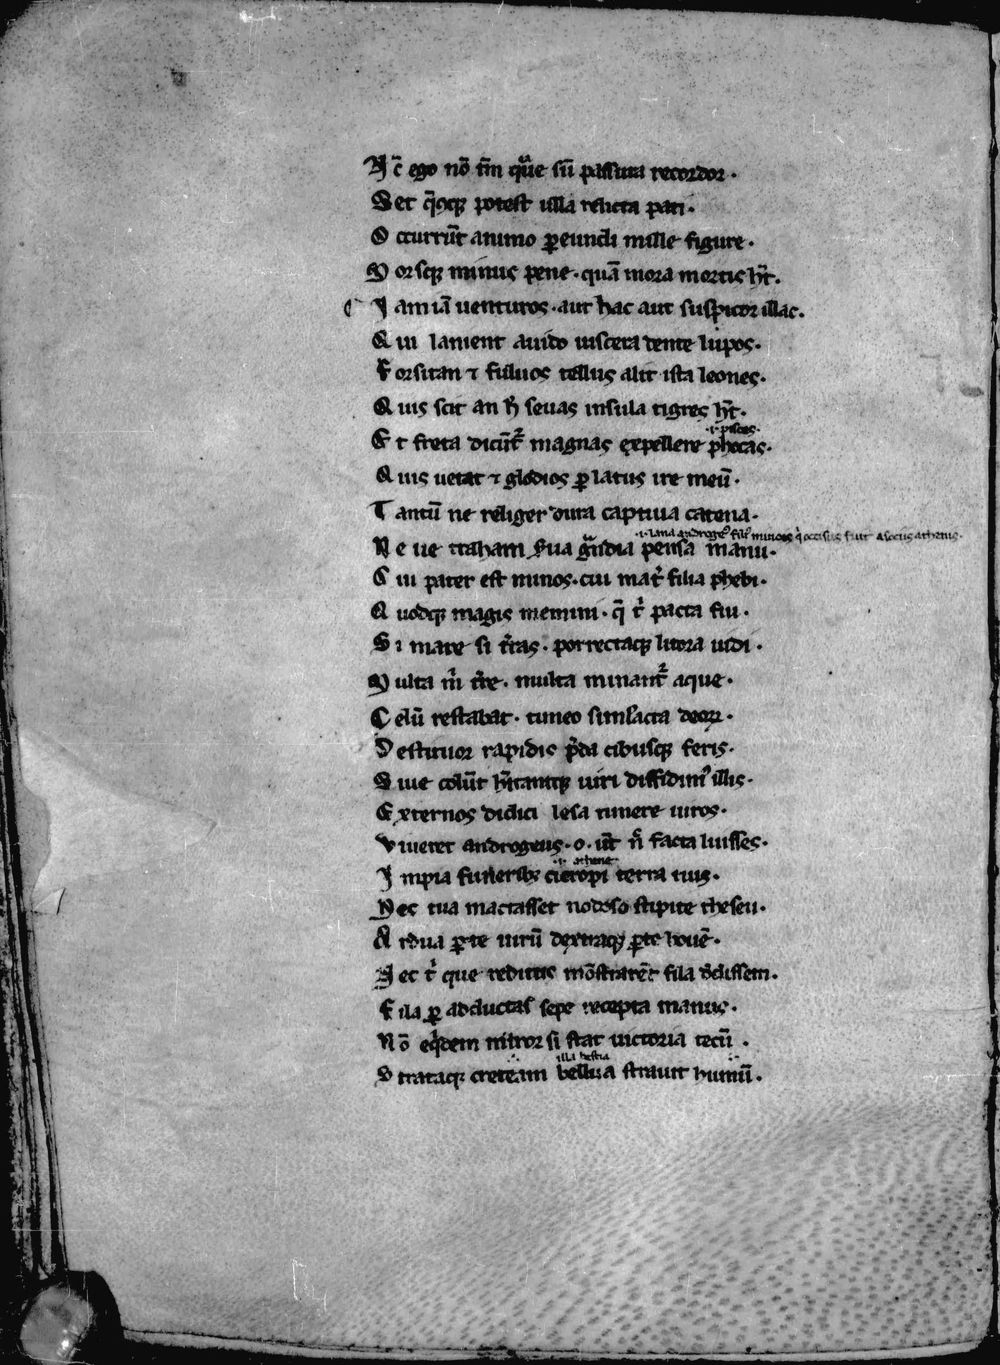 Nc̄ ego nō tm̄ que sū passura recordor·
Set q̄cūqꝫ potest ulla relicta pati·
Occurrūt animo ꝑeundi mille figure·
Morsqꝫ minus pene· quā mora mortis hn̄t·
Iam iā uenturos· aut hac aut suspicor illac·
Qui lanient auido uiscera dente lupos·
Forsitan ⁊ fuluos tellus alit ista leones·
Quis scit an h̄ seuas insula tigres hn̄t·
·i· pisces·
Et freta dicūt᷑ magnas expellere phocas·
Quis uetat ⁊ gladios ꝑ latus ire meū·
Tantū ne religer dura captiua catena·
·i· lana androgeꝰ filiꝰ minois q̇ occisus fuit a sociis athenis·
Ne ue traham sua gͣndia pensa manu·
Cui pater est minos· cui mat̄ filia phebi·
Quodqꝫ magis memini· q̄ t̄ pacta fui·
Si mare si t̄ras· porrectaqꝫ litora uidi·
Multa m̄ t̄re· multa minant᷑ aque·
Celū restabat· timeo simlacra deoꝝ·
Destituor rapidis p̄da cibusqꝫ feris·
Siue colūt hītantqꝫ uiri diffidimꝰ illis·
Externos didici lesa timere uiros·
Viueret androgeus· o· ut̄ n̄ facta luisses·
·i· athene
Impia funeribꝫ cicropi terra tuis·
Nec tua mactasset nodoso stipite theseu·
Ardua ꝑte uirū dextraqꝫ ꝑte bouē·
Nec t̄ que reditus mōstrarēt fila dedissem·
Fila ꝑ adductas sepe recepta manus·
Nō eq̇dem miror si stat uictoria tecū·
illa bestia
Strataqꝫ creteam bellua strauit humū·